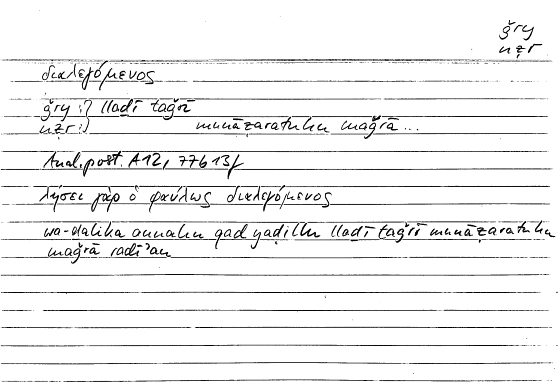 ǧry
nẓr
διαλεγόμενος
ǧry :) lladī taǧrī
nẓr :) munāẓaratuhu maǧrā...
Anal. post. A 12, 77b13f
λήσει γὰρ ὁ φαύλως διαλεγόμενος
wa-dalika annahu qad yaḍillu lladī taǧrī munāẓaratuhu
maǧrā radīʾan